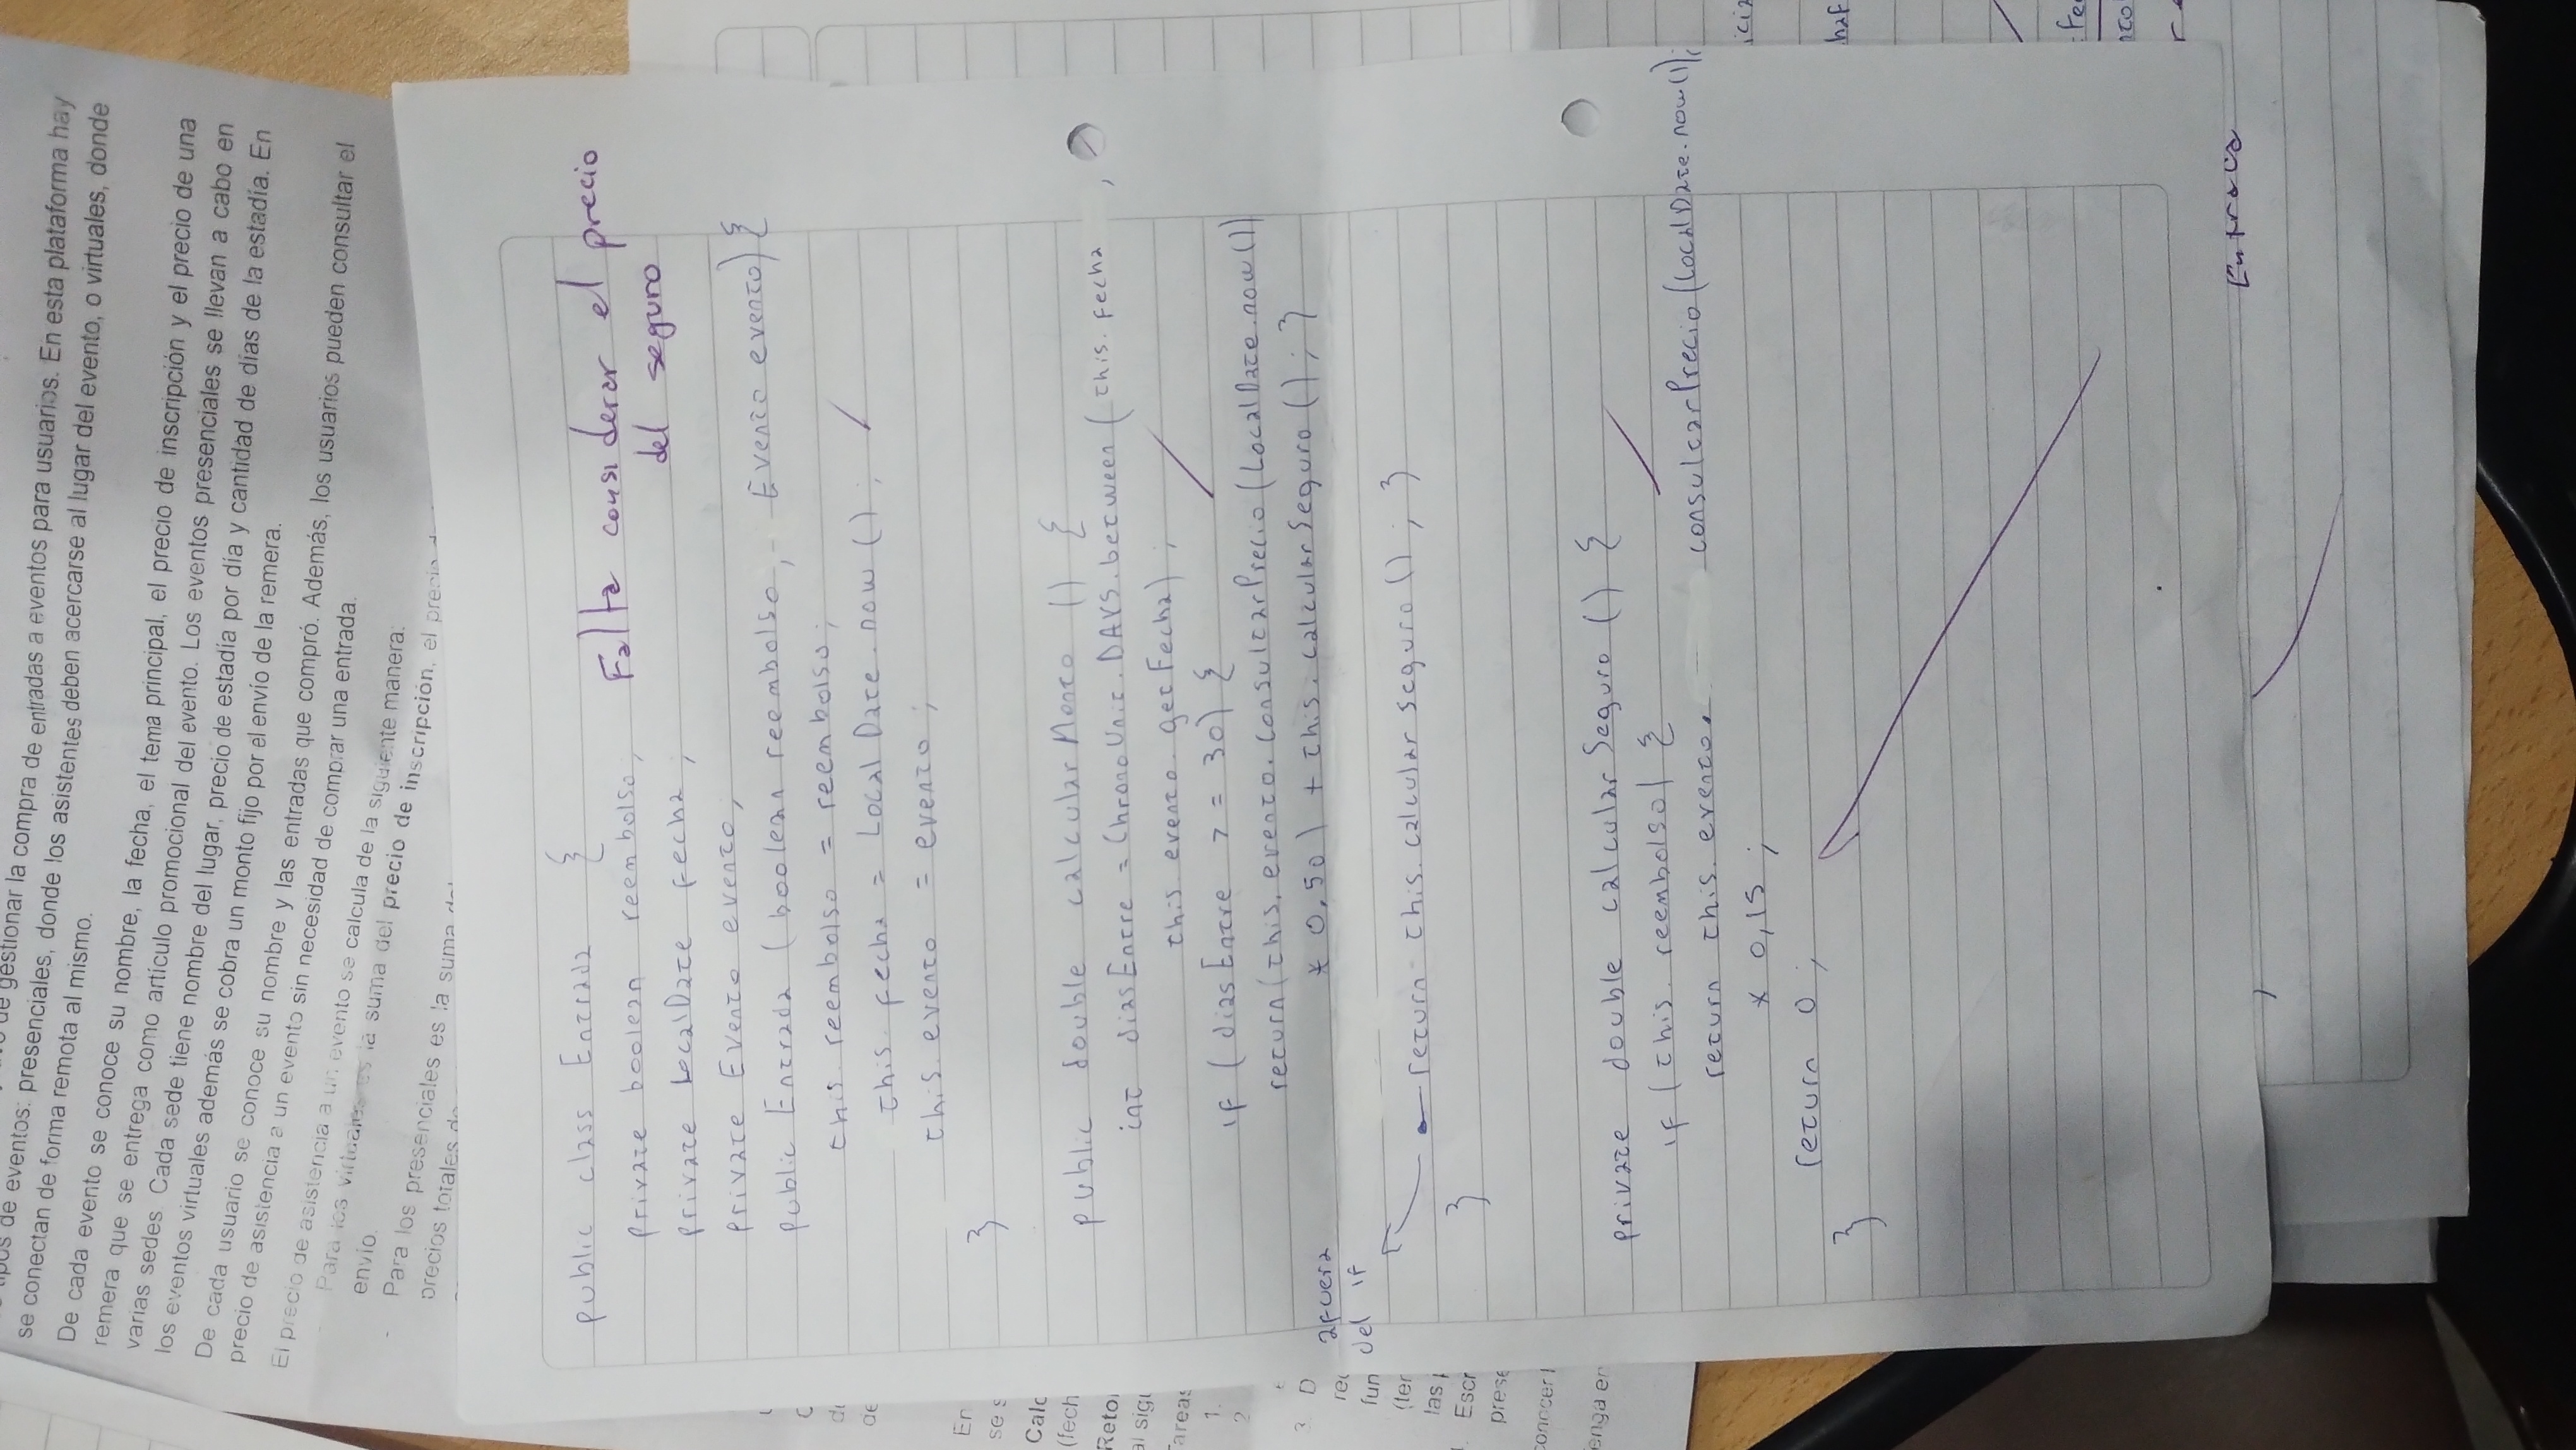 de gestionar la compra de entradas a eventos para usuarios. En esta plataforma hay
tipos de eventos: presenciales, donde los asistentes deben acercarse al lugar del evento, o virtuales, donde
se conectan de forma remota al mismo.
De cada evento se conoce su nombre, la fecha, el tema principal, el precio de inscripción y el precio de una
remera que se entrega como artículo promocional del evento. Los eventos presenciales se llevan a cabo en
varias sedes. Cada sede tiene nombre del lugar, precio de estadía por día y cantidad de días de la estadía. En
los eventos virtuales además se cobra un monto fijo por el envío de la remera.
De cada usuario se conoce su nombre y las entradas que compró. Además, los usuarios pueden consultar el
precio de asistencia a un evento sin necesidad de comprar una entrada.
El precio de asistencia a un evento se calcula de la siguiente manera:
- Para los virtuales es la suma del precio de inscripción, el precio
envío.
- Para los presenciales es la suma del
precios totales de
public class Entrada {
Falta considerar el precio
del seguro
private boolean reembolso;
private LocalDate fecha;
private Evento evento;
public Entrada (boolean reembolso, Evento evento) {
this.reembolso = reembolso;
this.fecha = LocalDate.now();
this.evento = evento;
}
public double calcularMonto () {
int diasEntre = ChronoUnit.DAYS.between (this.fecha ,
this.evento.getFecha);
if (diasEntre >= 30) {
return (this.evento.consultarPrecio (LocalDate.now())
* 0,50) + this.calcularSeguro (); }
afuera
del if
return this.calcularseguro (); }
}
private double calcularSeguro () {
if (this.reembolso) {
return this.evento. consultarPrecio (LocalDate.now());
* 0,15 ;
return 0;
}
En
se s
Calc
(fech
Reto
al sigu
areas
1.
2
3. D
rec
fun
(ter
las
Escr
prese
conocer
enga en
Entrada